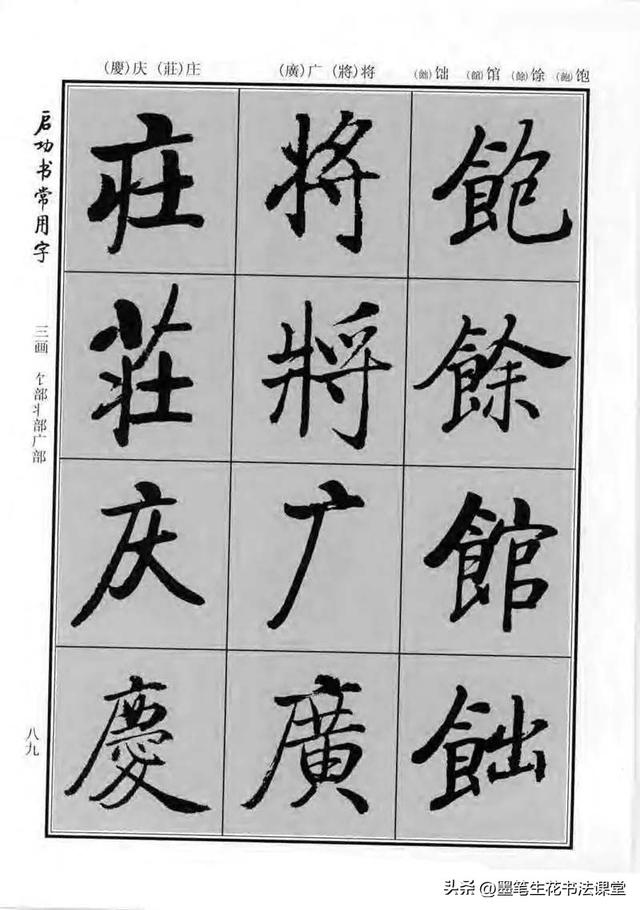 (慶)庆 (莊)庄 (廣)广 (將)将 (飿)饳 (館)馆 (餘)馀 (飽)饱
启功书常用字
三画 饣部丬部广部
八九
飽
餘
館
飿
将
將
广
廣
庄
莊
庆
慶
头条 @墨笔生花书法课堂